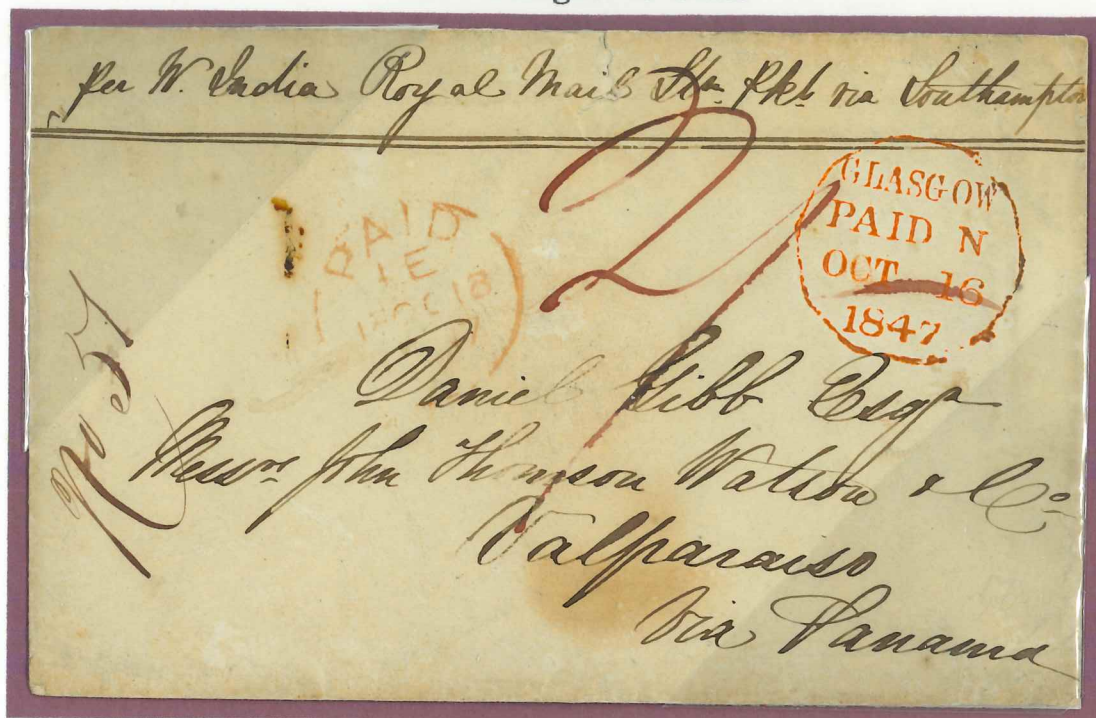 per W. India Royal Mail Stm Pkt via Southampton
2/
GLASGOW
PAID N
OCT 16
1847
PAID
1 E
18 OC 18
No 57
Daniel Gibb Esqr
Messrs John Thomson Watson & Co
Valparaiso
Via Panama